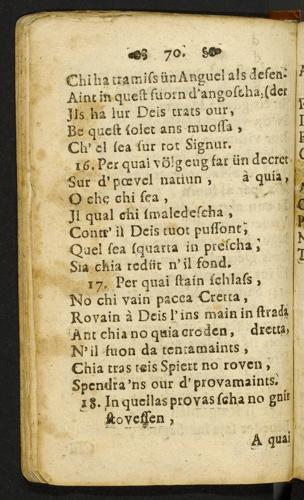 70.
Chi ha tramiſs ün Anguel als defen-
Aint in queſt fuorn d'angoſcha, (der
Jls ha lur Deis trats our,
Be queſt ſolet ans muoſſa,
Ch' el ſea ſur rot Signur.
16. Per quai völg eug far ün decret
Sur d' pœvel natiun, à quia,
O che chi ſea,
Jl qual chi ſmaledeſcha,
Contr' il Deis tuot puſſont;
Quel ſea ſquarta in preſcha;
Sia chia redüt n'il fond.
17. Per quai ſtain ſchlaſs,
No chi vain pacca Cretta,
Rovain à Deis l'ins main in ſtrada
Ant chia no quia croden, dretta,
N'il fuon da tentamaints,
Chia tras teis Spiert no roven,
Spendra 'ns our d' provamaints.
18. In quellas provas ſcha no gnir
ſtoveſſen,
A quai